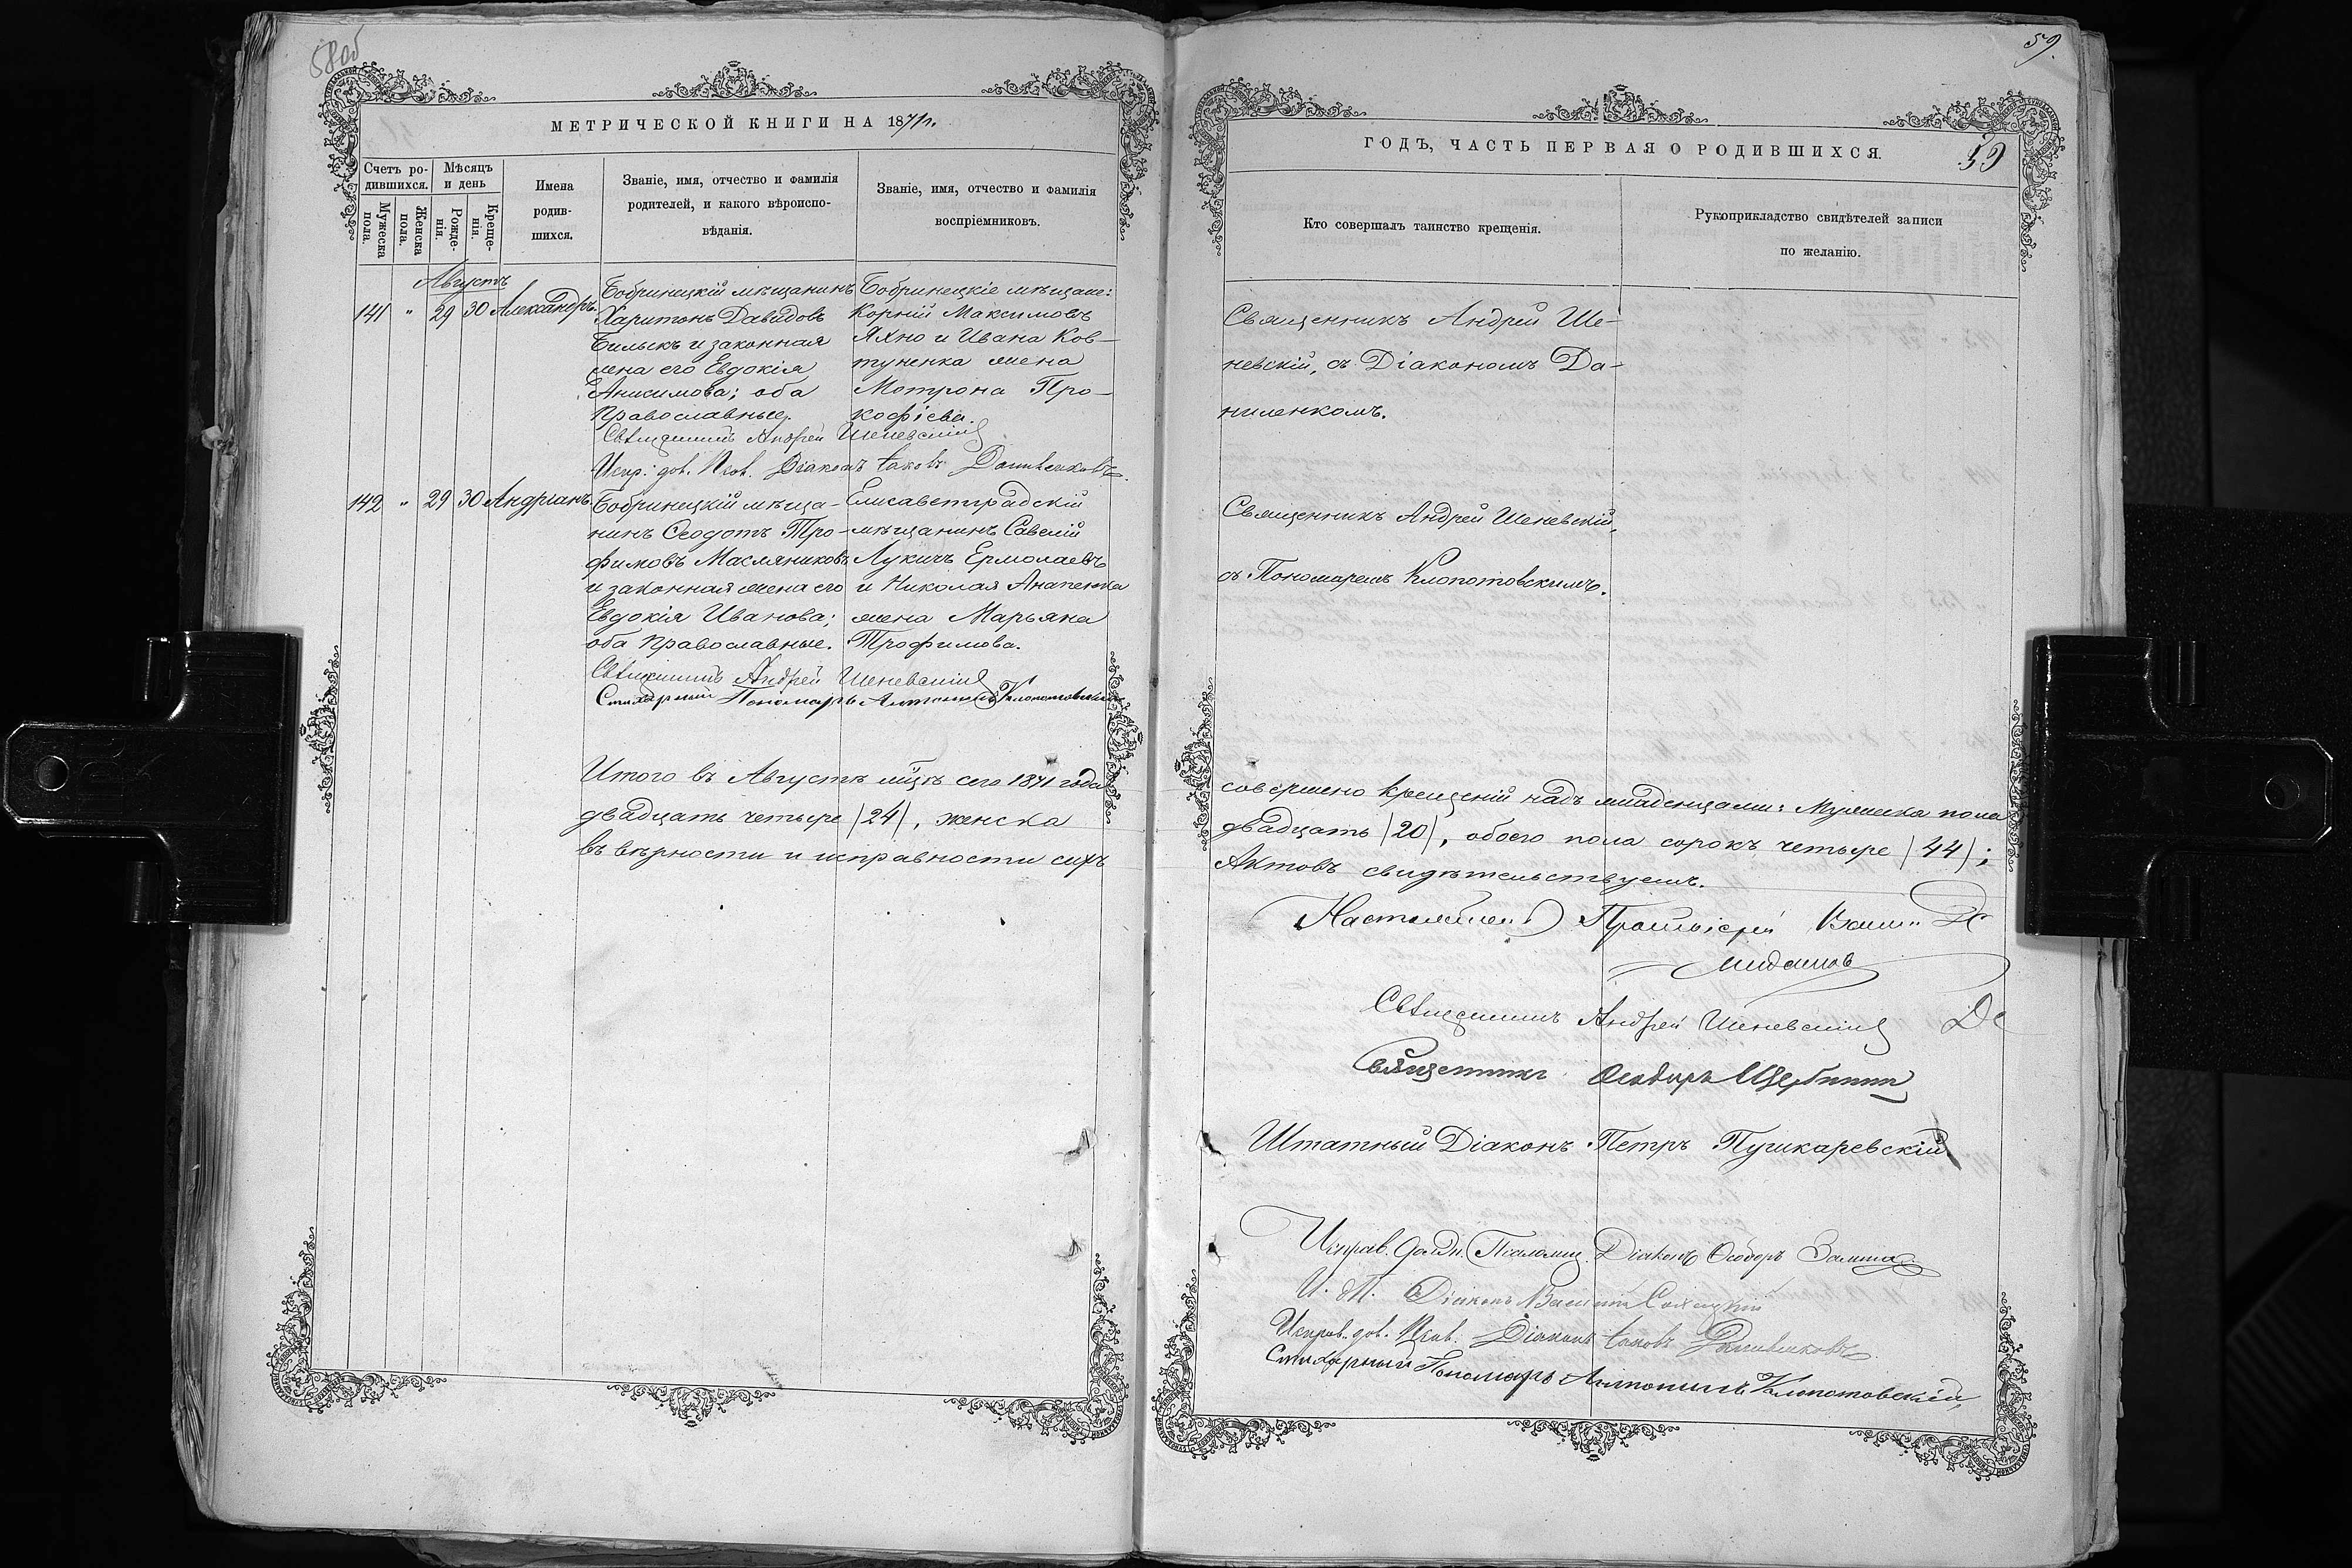 58об
МЕТРИЧЕСКОЙ КНИГИ НА 1871 г.
Счетъ ро-
дившихся.
Мѣсяцъ
и день
Имена
родив-
шихся.
Званіе, имя, отчество и фамилія
родителей, и какого вѣроиспо-
вѣданія.
Званіе, имя, отчество и фамилія
воспріемниковъ.
Мужеска
пола.
Женска
пола.
Рожде-
нія.
Креще-
нія.
Августъ
141 " 29 30 Александръ.
Бобринецкій мѣщанинъ
Харитонъ Давидовъ
Билыкъ и законная
жена его Евдокія
Анисимова; оба
Православные.
Бобринецкіе мѣщане:
Корній Максимовъ
Яхно и Ивана Ков-
туненка жена
Мотрона Про-
кофіева.
Священникъ Андрей Шеневскій
Испр: дол. Псал. Діаконъ Іаковъ
142 " 29 30 Андріанъ.
Бобринецкій мѣща-
нинъ Ѳеодотъ Тро-
фимовъ Масляниковъ
и законная жена его
Евдокія Иванова;
оба Православные.
Елисаветградскій
мѣщанинъ Савелій
Лукичъ Ермолаевъ
и Николая Анапенка
жена Марьяна
Трофимова.
Священникъ Андрей Шеневскій
Стихарный Пономарь Антонинъ Клопотовскій
Итого въ Августѣ мцѣ сего 1871 года
двадцать четыре /24/, женска
въ вѣрности и исправности сихъ
59.
ГОДЪ, ЧАСТЬ ПЕРВАЯ О РОДИВШИХСЯ.
59
Кто совершалъ таинство крещенія.
Рукоприкладство свидѣтелей записи
по желанію.
Священникъ Андрей Ше-
невскій, съ Діакономъ Да-
ниленкомъ.
Священникъ Андрей Шеневскій,
съ Пономаремъ Клопотовскимъ.
совершено крещеній надъ младенцами: Мужеска пола
двадцать /20/, обоего пола сорокъ четыре /44/;
Актовъ свидѣтельствуемъ.
Настоятель Протоіерей
Священникъ Андрей Шеневскій
Священникъ Ѳеодоръ Щербина
Штатный Діаконъ Петръ Пушкаревскій
Исправ. долж. Псаломщ. Діаконъ Ѳеодоръ
И. д. П. Діаконъ Василій
Исправ. дол. Псал. Діаконъ Іаковъ
Стихарный Пономарь Антонинъ Клопотовскій